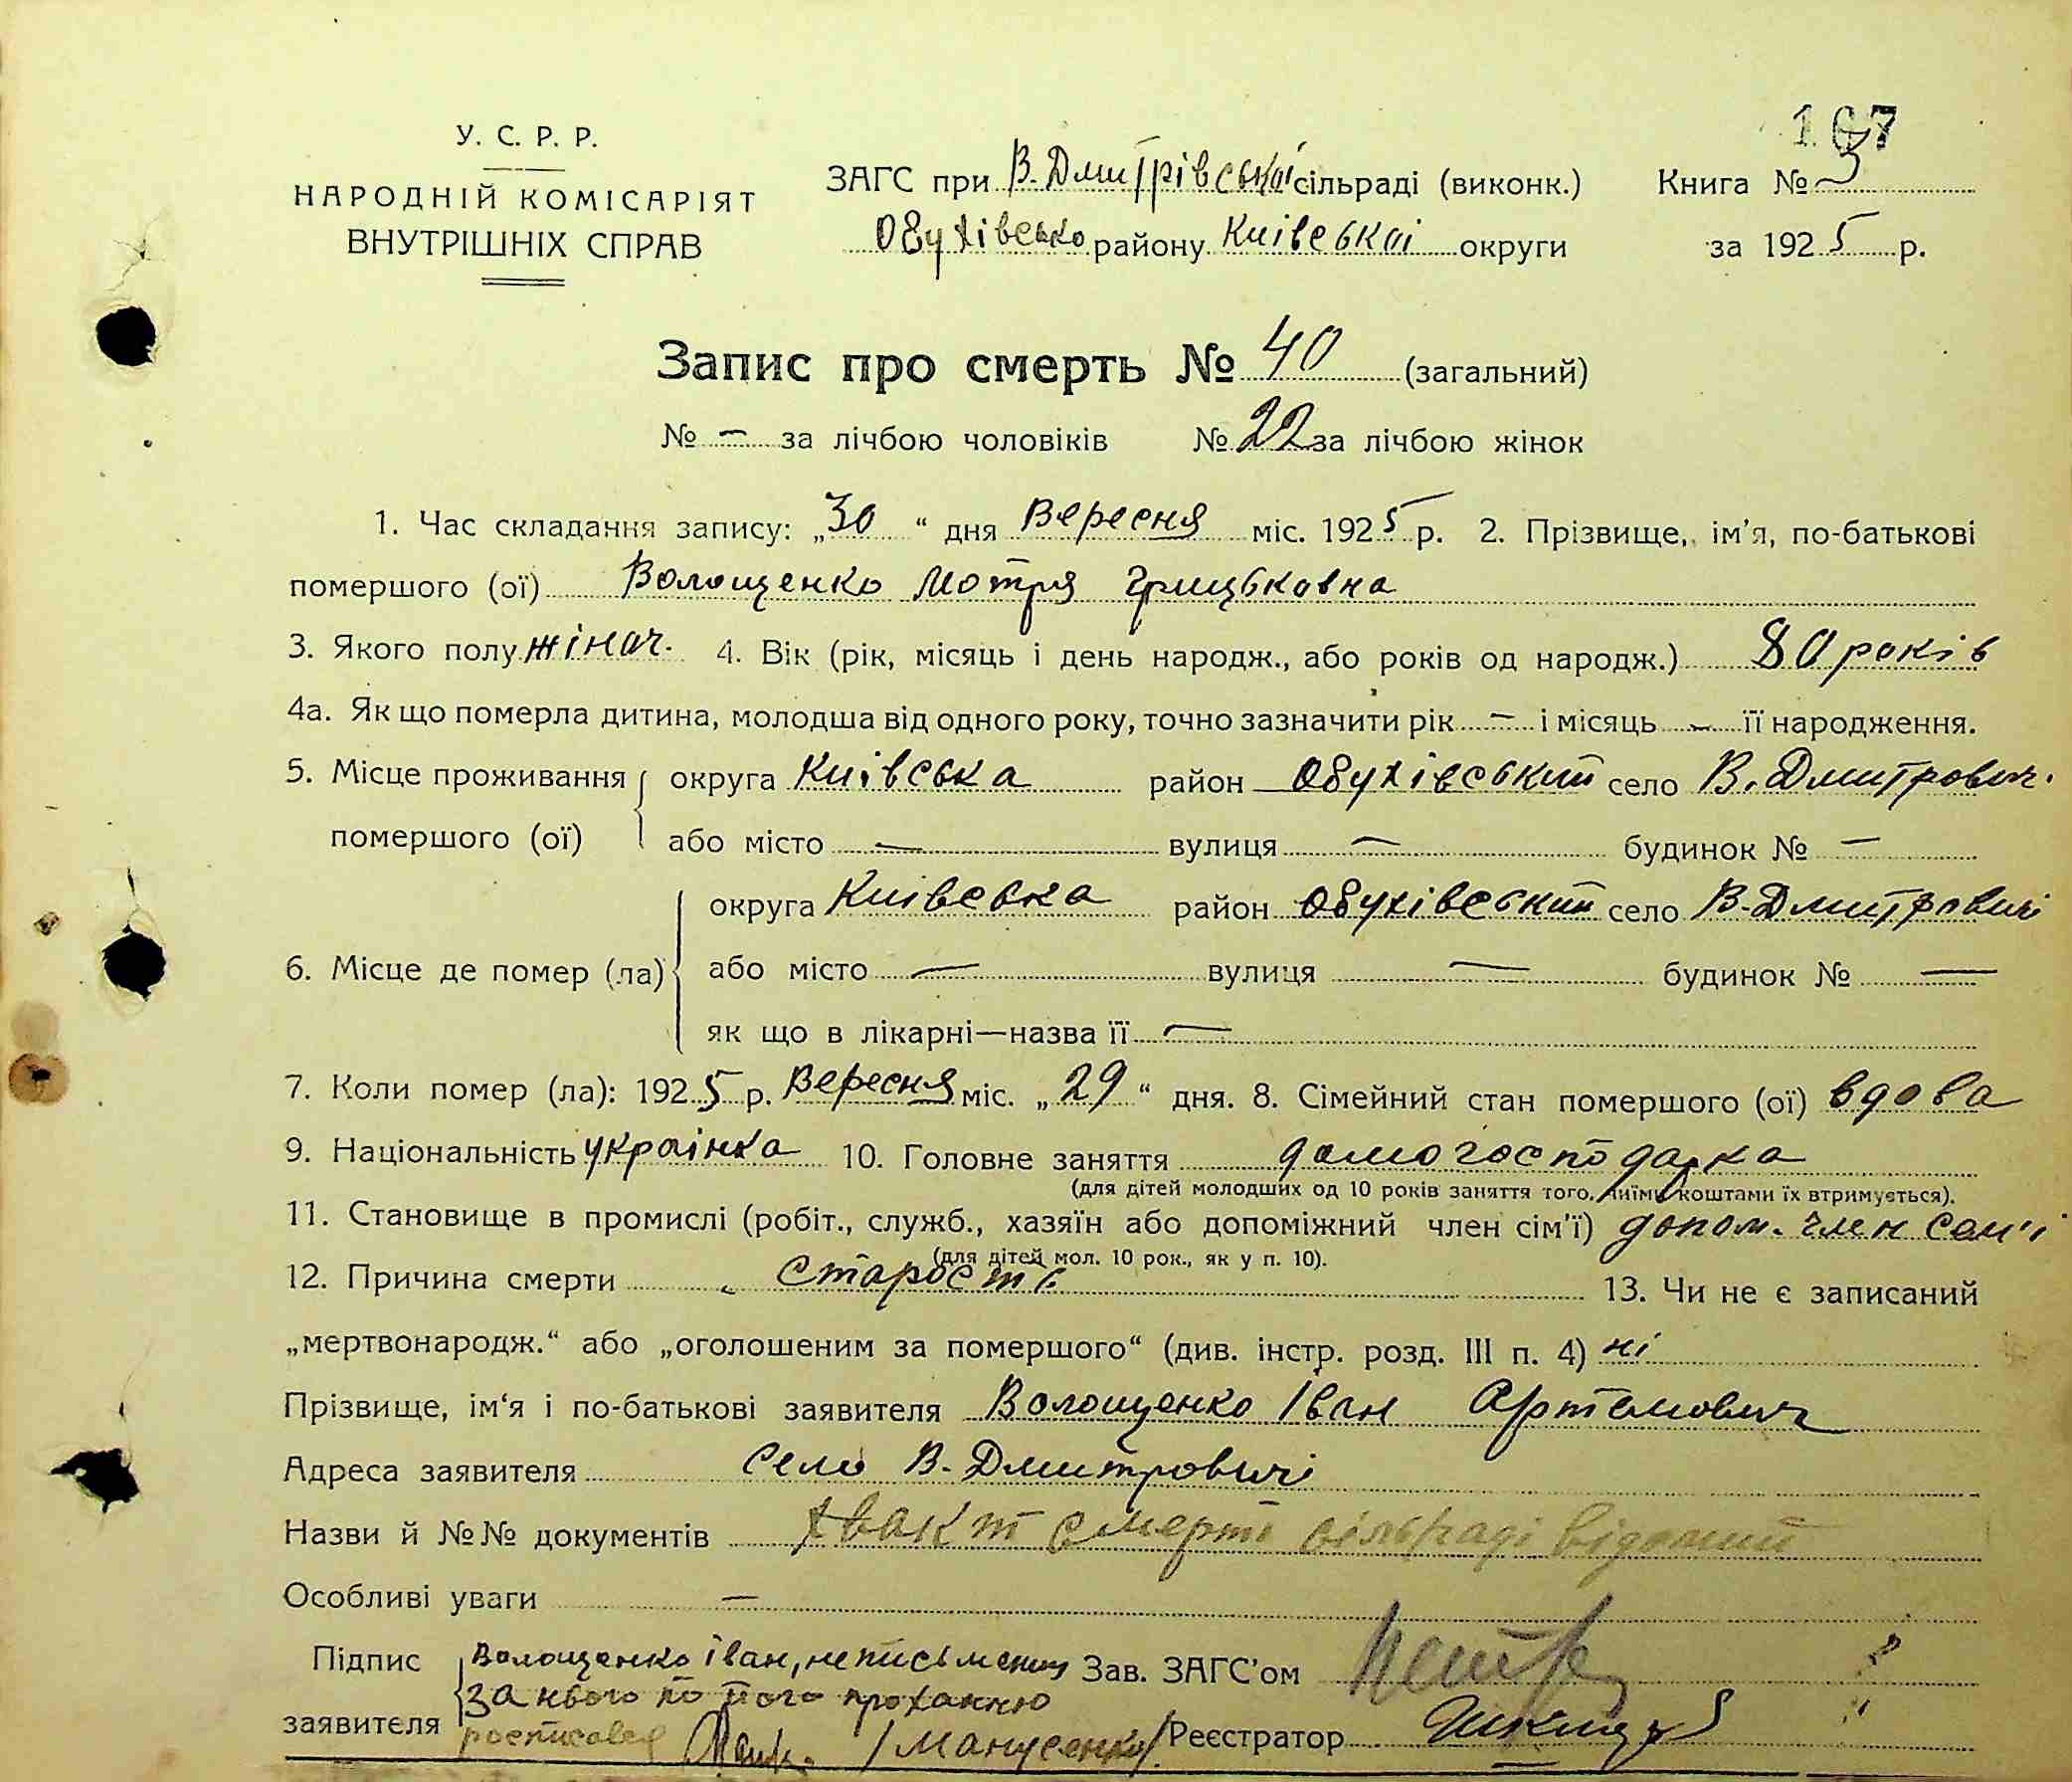 167
У. С. Р. Р.
НАРОДНІЙ КОМІСАРІЯТ
ВНУТРІШНІХ СПРАВ
ЗАГС при В-Дмитрівській сільраді (виконк.)
Обухівсько району Київської округи
Книга № 3
за 1925 р.
Запис про смерть № 40 (загальний)
№ — за лічбою чоловіків № 22 за лічбою жінок
1. Час складання запису: „30“ дня Вересня міс. 1925 р. 2. Прізвище, ім'я, по-батькові
помершого (ої) Волощенко Мотря Грицьковна
3. Якого полу жіноч. 4. Вік (рік, місяць і день народж., або років од народж.) 80 років
4а. Як що померла дитина, молодша від одного року, точно зазначити рік — і місяць — її народження.
5. Місце проживання округа Київська район Обухівський село В. Дмитрович.
помершого (ої) або місто — вулиця — будинок № —
округа Київська район Обухівський село В-Дмитровичі
6. Місце де помер (ла) або місто — вулиця — будинок № —
як що в лікарні—назва її —
7. Коли помер (ла): 1925 р. Вересня міс. „29“ дня. 8. Сімейний стан помершого (ої) вдова
9. Національність українка 10. Головне заняття домогосподарка
(для дітей молодших од 10 років заняття того, чиїми коштами їх втримується).
11. Становище в промислі (робіт., служб., хазяїн або допоміжний член сім'ї) допом. член сем'і
(для дітей мол. 10 рок., як у п. 10).
12. Причина смерти Старость 13. Чи не є записаний
„мертвонародж.“ або „оголошеним за помершого“ (див. інстр. розд. III п. 4) ні
Прізвище, ім'я і по-батькові заявителя Волощенко Іван Артемович
Адреса заявителя село В-Дмитровичі
Назви й №№ документів хвакт смерті сільраді відомий
Особливі уваги —
Підпис Волощенко Іван, неписьмений Зав. ЗАГС'ом
за нього по його проханню
заявителя росписався /Манусенко/ Реєстратор